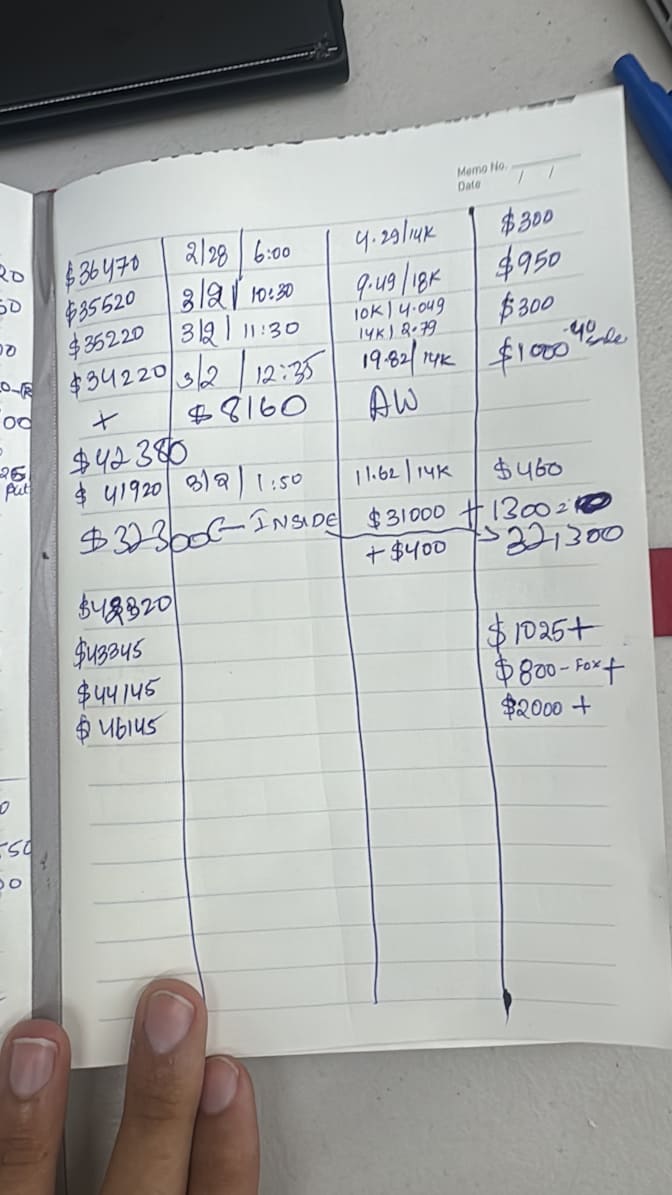 Memo No.
Date / /
$36470 2/28 6:00 4.29/14K $300
$35520 3/2 10:30 9.49/18K $950
$35220 3/2 11:30 10K) 4.049 $300
14K) 2.79
$34220 3/2 12:35 19.82/14K $1000 -40
+ $8160 AW
$42380
$41920 3/2 1:50 11.62/14K $460
$32300 ← INSIDE $31000 + 1300 =
+ $400 → 32,300
$42320
$43345 $1025 +
$44145 $800 - Fox +
$46145 $2000 +
20
50
00
00
25
Put
0
550
00